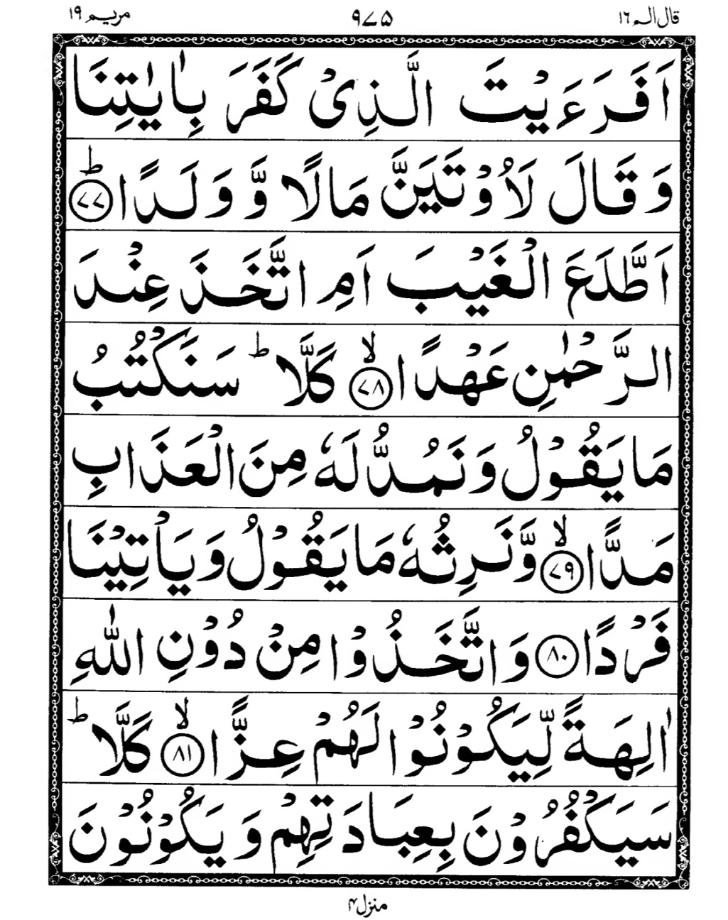 قال الم ١٦ ٩٧٥ مريم ١٩
اَفَرَءَيْتَ الَّذِىْ كَفَرَ بِاٰيٰتِنَا
وَقَالَ لَاُوْتَيَنَّ مَالًا وَّ وَلَدًا ؕ ﴿٧٧﴾
اَطَّلَعَ الْغَيْبَ اَمِ اتَّخَذَ عِنْدَ
الرَّحْمٰنِ عَهْدًا ۙ ﴿٧٨﴾ كَلَّا ؕ سَنَكْتُبُ
مَا يَقُوْلُ وَنَمُدُّ لَهٗ مِنَ الْعَذَابِ
مَدًّا ۙ ﴿٧٩﴾ وَّنَرِثُهٗ مَا يَقُوْلُ وَيَاْتِيْنَا
فَرْدًا ﴿٨٠﴾ وَاتَّخَذُوْا مِنْ دُوْنِ اللّٰهِ
اٰلِهَةً لِّيَكُوْنُوْا لَهُمْ عِزًّا ۙ ﴿٨١﴾ كَلَّا ؕ
سَيَكْفُرُوْنَ بِعِبَادَتِهِمْ وَيَكُوْنُوْنَ
منزل ٤